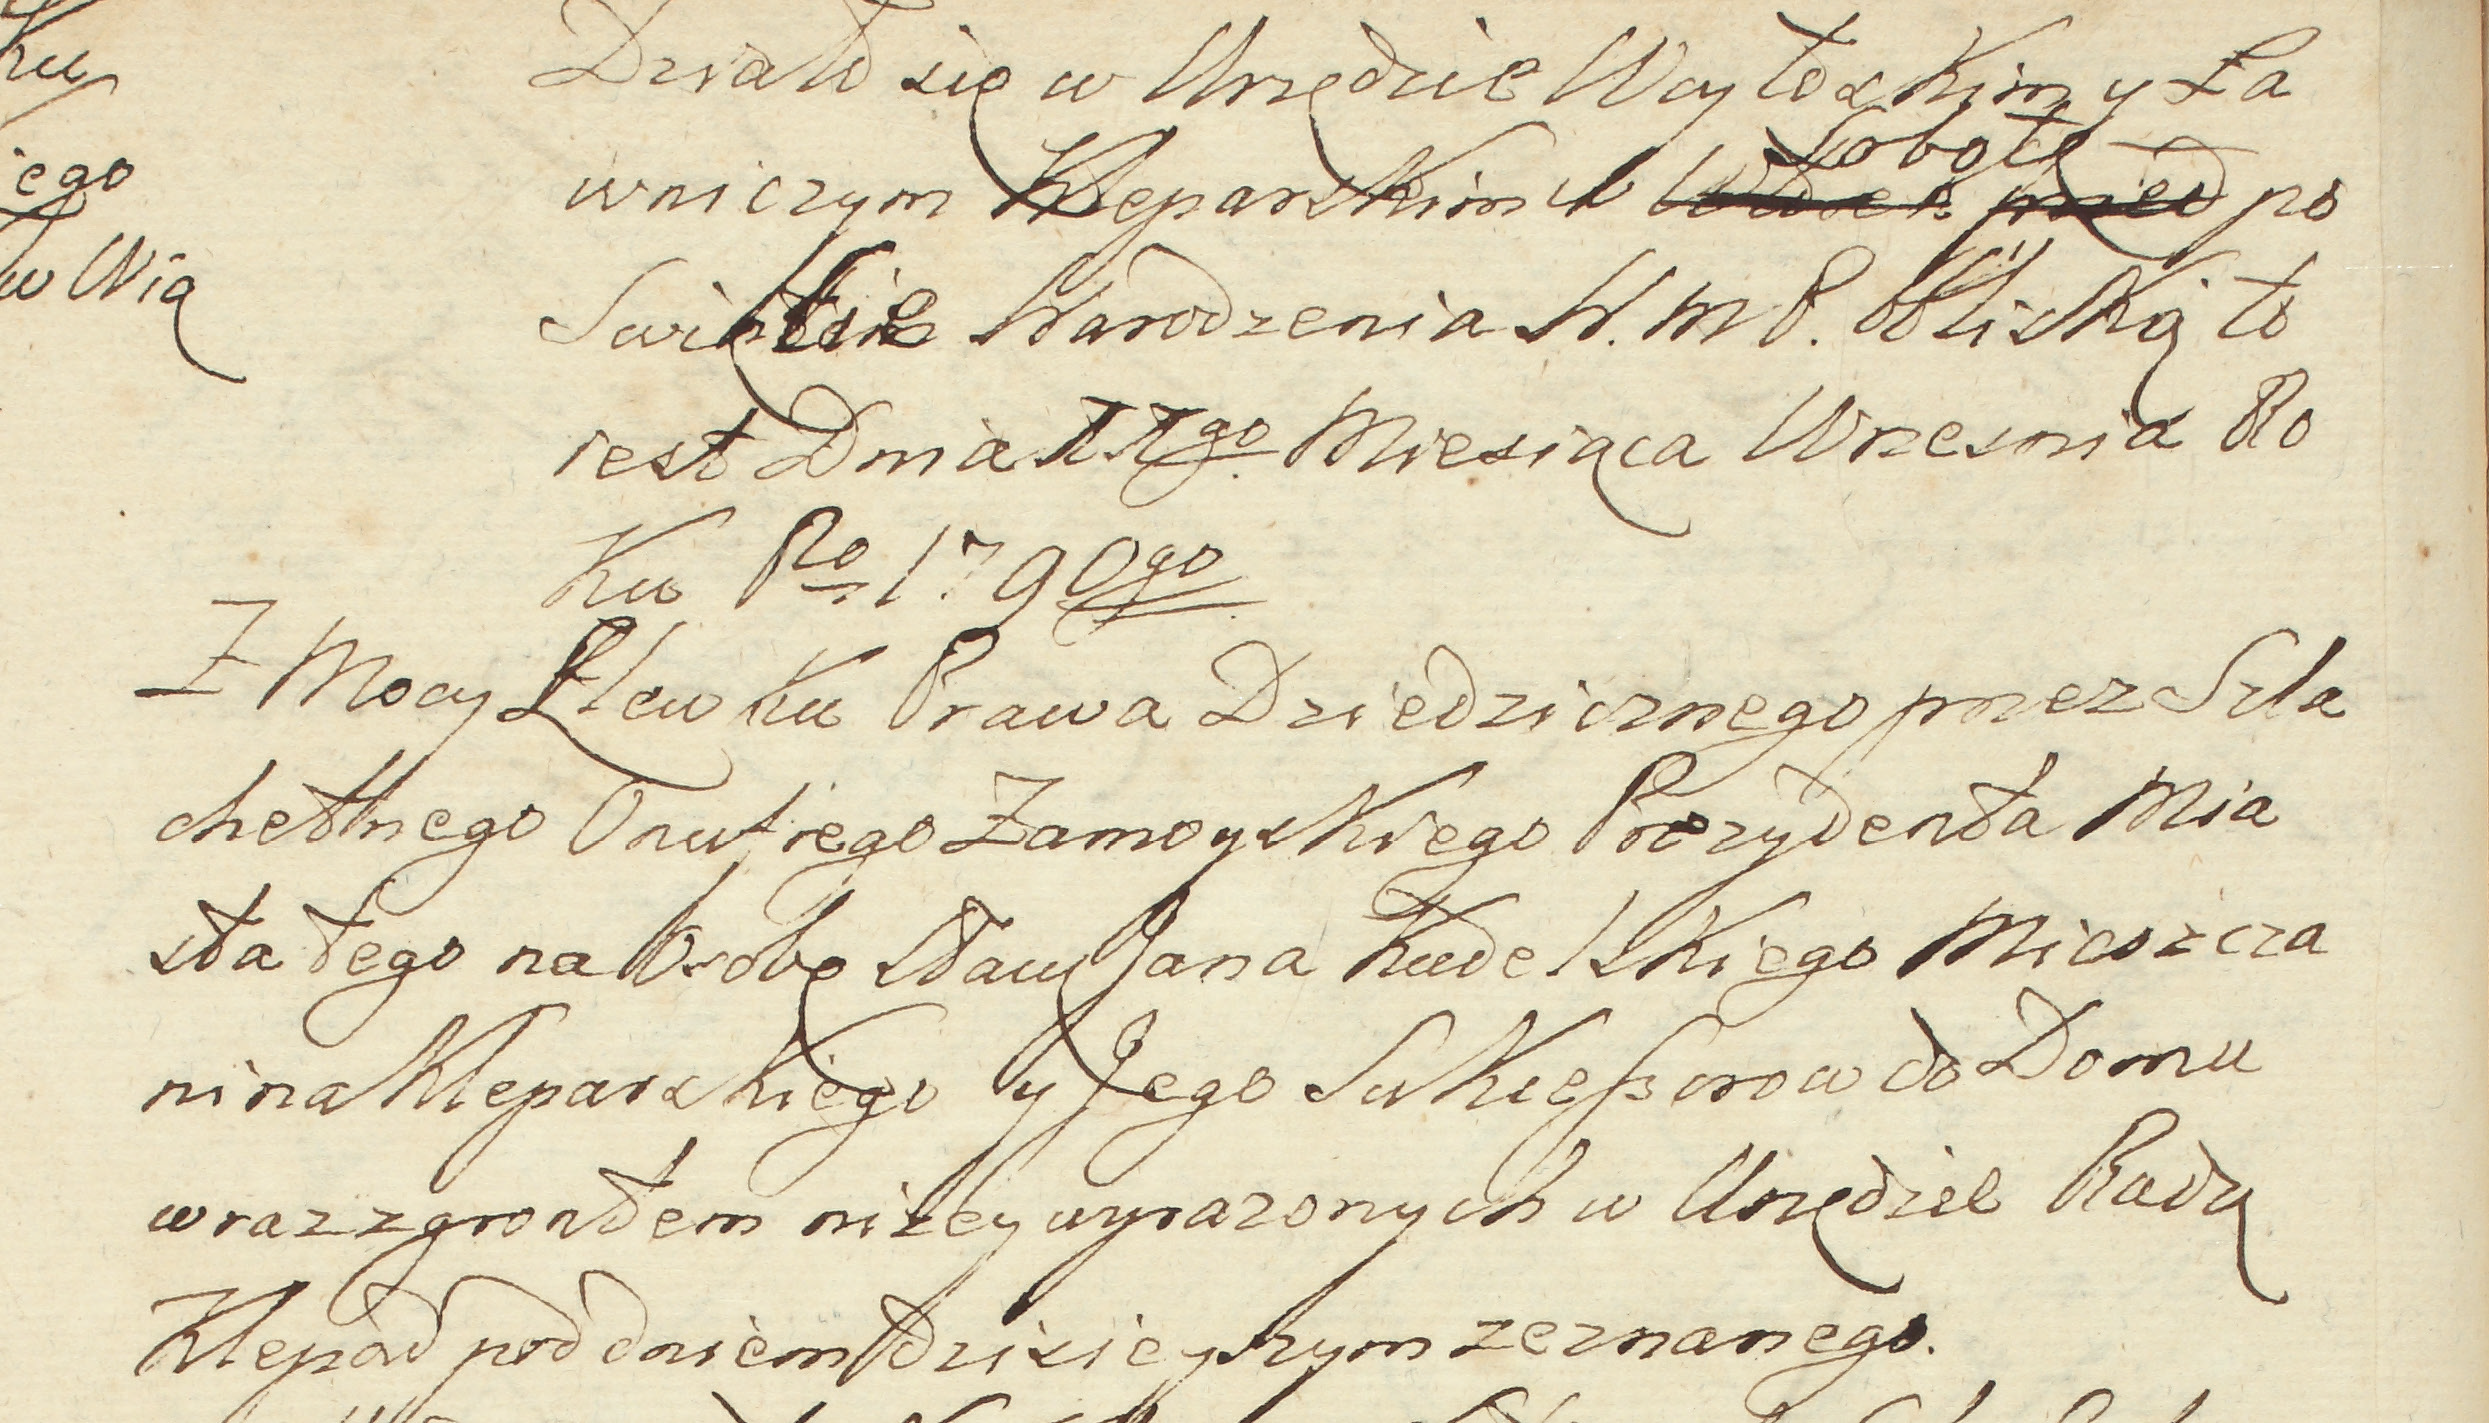 ku
iego
w Wią
Działo się w Urzędzie Woytoskim y Ła
wniczym Kleparskim w Wtorek przed Sobotę po
Święcie Narodzenia N. M P. bliską to
iest Dnia 11go. Miesiąca Wrzesnia Ro
ku Ro. 1790go
Z Mocy Zlewku Prawa Dziedzicznego przez Szla
chethnego Onufrego Zamoyskiego Prezydenta Mia
sta tego na Osobę sław Jana Kudelskiego Mieszcza
nina Kleparskiego y Jego Sukceßorow do Domu
wraz z grontem niżey wyrazonych w Urzędzie Radz
Klepar pod dniem dzisieyszym zeznanego.